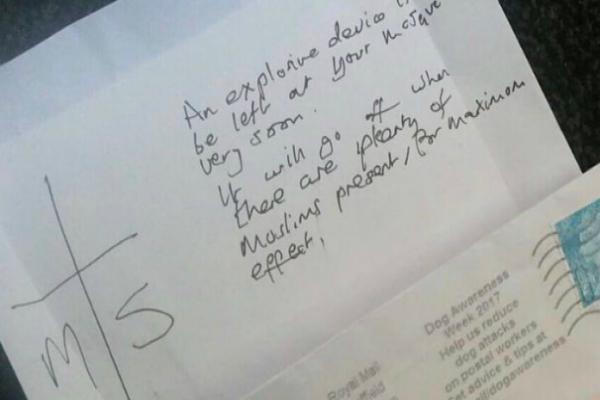 An explosive device
be left at your mosque
very soon.
It will go off when
there are plenty of
Muslims present, for maximum
effect,
M S
Royal Mail
Dog Awareness
Week 2017
Help us reduce
dog attacks
on postal workers
Get advice & tips at
dogawareness